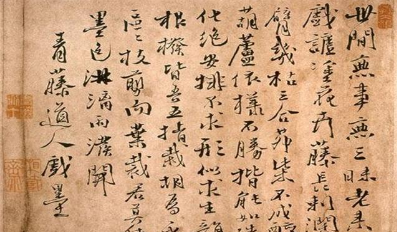 世間無事無三昧老來
戲謔塗花卉藤長刺闊
臂幾枯三合茅柴不成醉
葫蘆依樣不勝揩能如造
化絕安排不求形似求生韻
根撥皆吾五指栽胡為
區區枝剪而葉裁君莫
墨色淋漓雨潑開
青藤道人戲墨